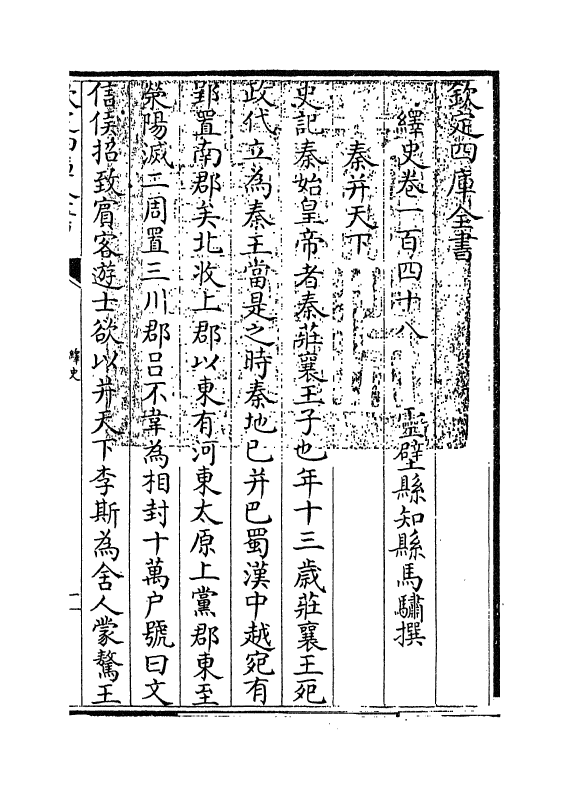 欽定四庫全書
繹史卷一百四十八　靈壁縣知縣馬驌撰
秦并天下
史記秦始皇帝者秦莊襄王子也年十三歲莊襄王死
政代立為秦王當是之時秦地已并巴蜀漢中越宛有
郢置南郡矣北收上郡以東有河東太原上黨郡東至
滎陽滅二周置三川郡呂不韋為相封十萬户號曰文
信侯招致賓客遊士欲以并天下李斯為舍人蒙驁王
繹史